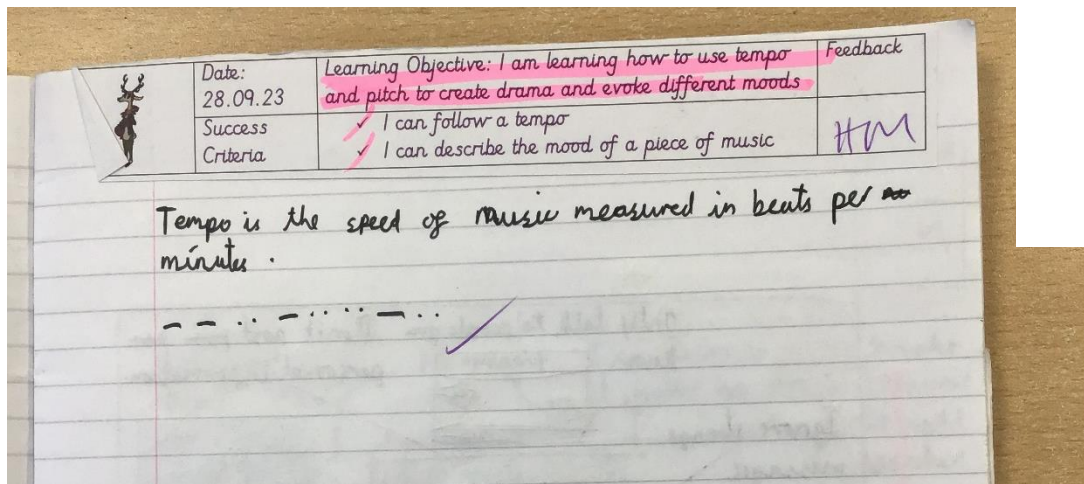 Date:
28.09.23
Learning Objective: I am learning how to use tempo
and pitch to create drama and evoke different moods
Feedback
Success
Criteria
✓ I can follow a tempo
✓ I can describe the mood of a piece of music
HM
Tempo is the speed of music measured in beats per
minutes.
— — . . — . . . . — . .